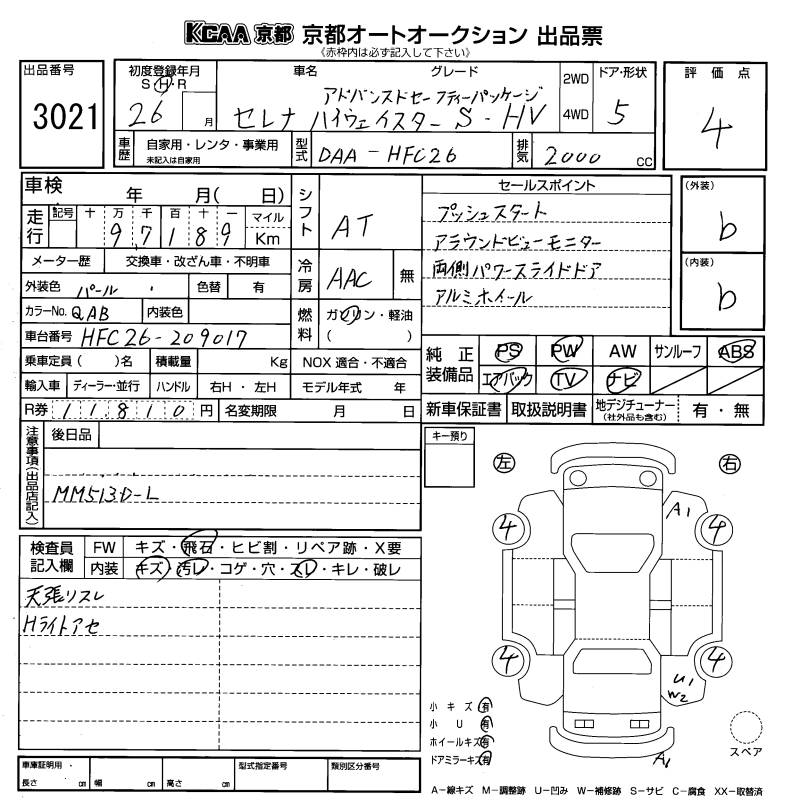 KCAA 京都 京都オートオークション 出品票
《赤枠内は必ず記入して下さい》
出品番号
3021
初度登録年月
S・H・R
26 月
車名
グレード
アドバンスドセーフティーパッケージ
セレナ ハイウェイスター S-HV
2WD
4WD
ドア・形状
5
評価点
4
車歴
自家用・レンタ・事業用
未記入は自家用
型式
DAA-HFC26
排気
2000 cc
車検 年 月( 日)
走行
記号 十 万 千 百 十 一
97189
マイル
Km
シフト
AT
メーター歴 交換車・改ざん車・不明車
冷房
AAC 無
外装色 パール 色替 有
カラーNo. QAB 内装色
燃料
ガソリン・軽油
( )
車台番号 HFC26-209017
乗車定員( )名 積載量 Kg NOX 適合・不適合
輸入車 ディーラー・並行 ハンドル 右H・左H モデル年式 年
R券 11810 円 名変期限 月 日
セールスポイント
プッシュスタート
アラウンドビューモニター
両側パワースライドドア
アルミホイール
(外装)
b
(内装)
b
純正装備品
PS PW AW サンルーフ ABS
エアバック TV ナビ
新車保証書 取扱説明書 地デジチューナー(社外品も含む) 有・無
注意事項(出品店記入)
後日品
MM513D-L
キー預り
検査員記入欄
FW キズ・飛石・ヒビ割・リペア跡・X要
内装 キズ・汚レ・コゲ・穴・スレ・キレ・破レ
天張リスレ
Hライトアセ
左 右
4 4
4 4
A1
U1
W2
A1
小キズ 有
小U 有
ホイールキズ 有
ドアミラーキズ 有
スペア
車庫証明用・
長さ cm 幅 cm 高さ cm
型式指定番号
類別区分番号
A-線キズ M-調整跡 U-凹み W-補修跡 S-サビ C-腐食 XX-取替済